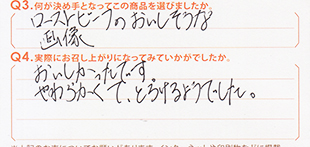 Q3.何が決め手となってこの商品を選びましたか。
ローストビーフのおいしそうな
画像
Q4.実際にお召し上がりになってみていかがでしたか。
おいしかったです。
やわらかくて、とろけるようでした。